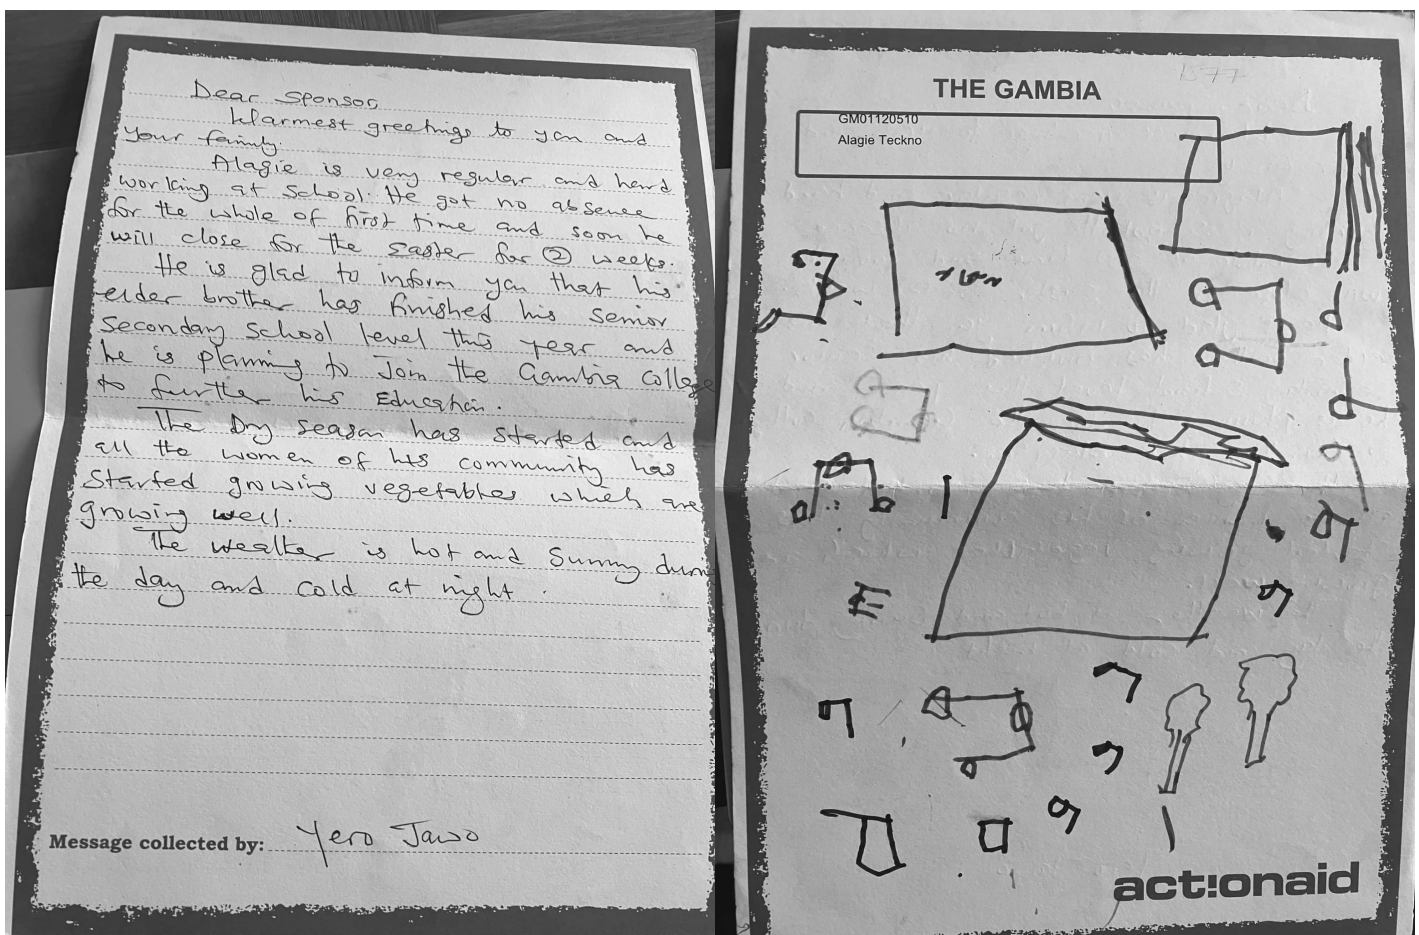 Dear Sponsor,
Warmest greetings to you and
your family.
Alagie is very regular and hard
working at School. He got no absence
for the whole of first time and soon he
will close for the Easter for ② weeks.
He is glad to inform you that his
elder brother has finished his senior
Secondary School level this year and
he is planning to Join the Gambia College
to further his Education.
The Dry season has started and
all the women of his community has
Started growing vegetables which are
growing well.
The weather is hot and Sunny durin
the day and cold at night.
Message collected by: Yero Jawo
1577
THE GAMBIA
GM01120510
Alagie Teckno
act!onaid